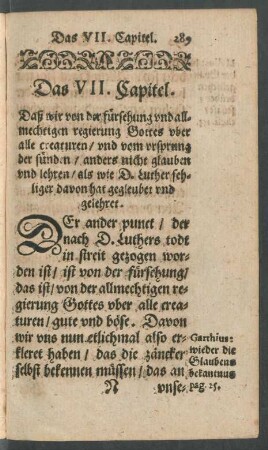 Das VII. Capitel. 289
Das VII. Capitel.
Daß wir von der fürsehung vnd all-
mechtigen regierung Gottes vber
alle creaturen / vnd vom vrsprung
der sünden / anders nicht glauben
vnd lehren / als wie D. Luther seh-
liger davon hat gegleubet vnd
gelehret.
DEr ander punct / der
nach D. Luthers todt
in streit gezogen wor-
den ist / ist von der fürsehung /
das ist / von der allmechtigen re-
gierung Gottes vber alle crea-
turen / gute vnd böse. Davon
wir vns nun etlichmal also er-
kleret haben / das die zäncker
selbst bekennen müssen / das an
Garthius
wieder die
Glaubens
bekantnus
pag. 25.
N vnse-